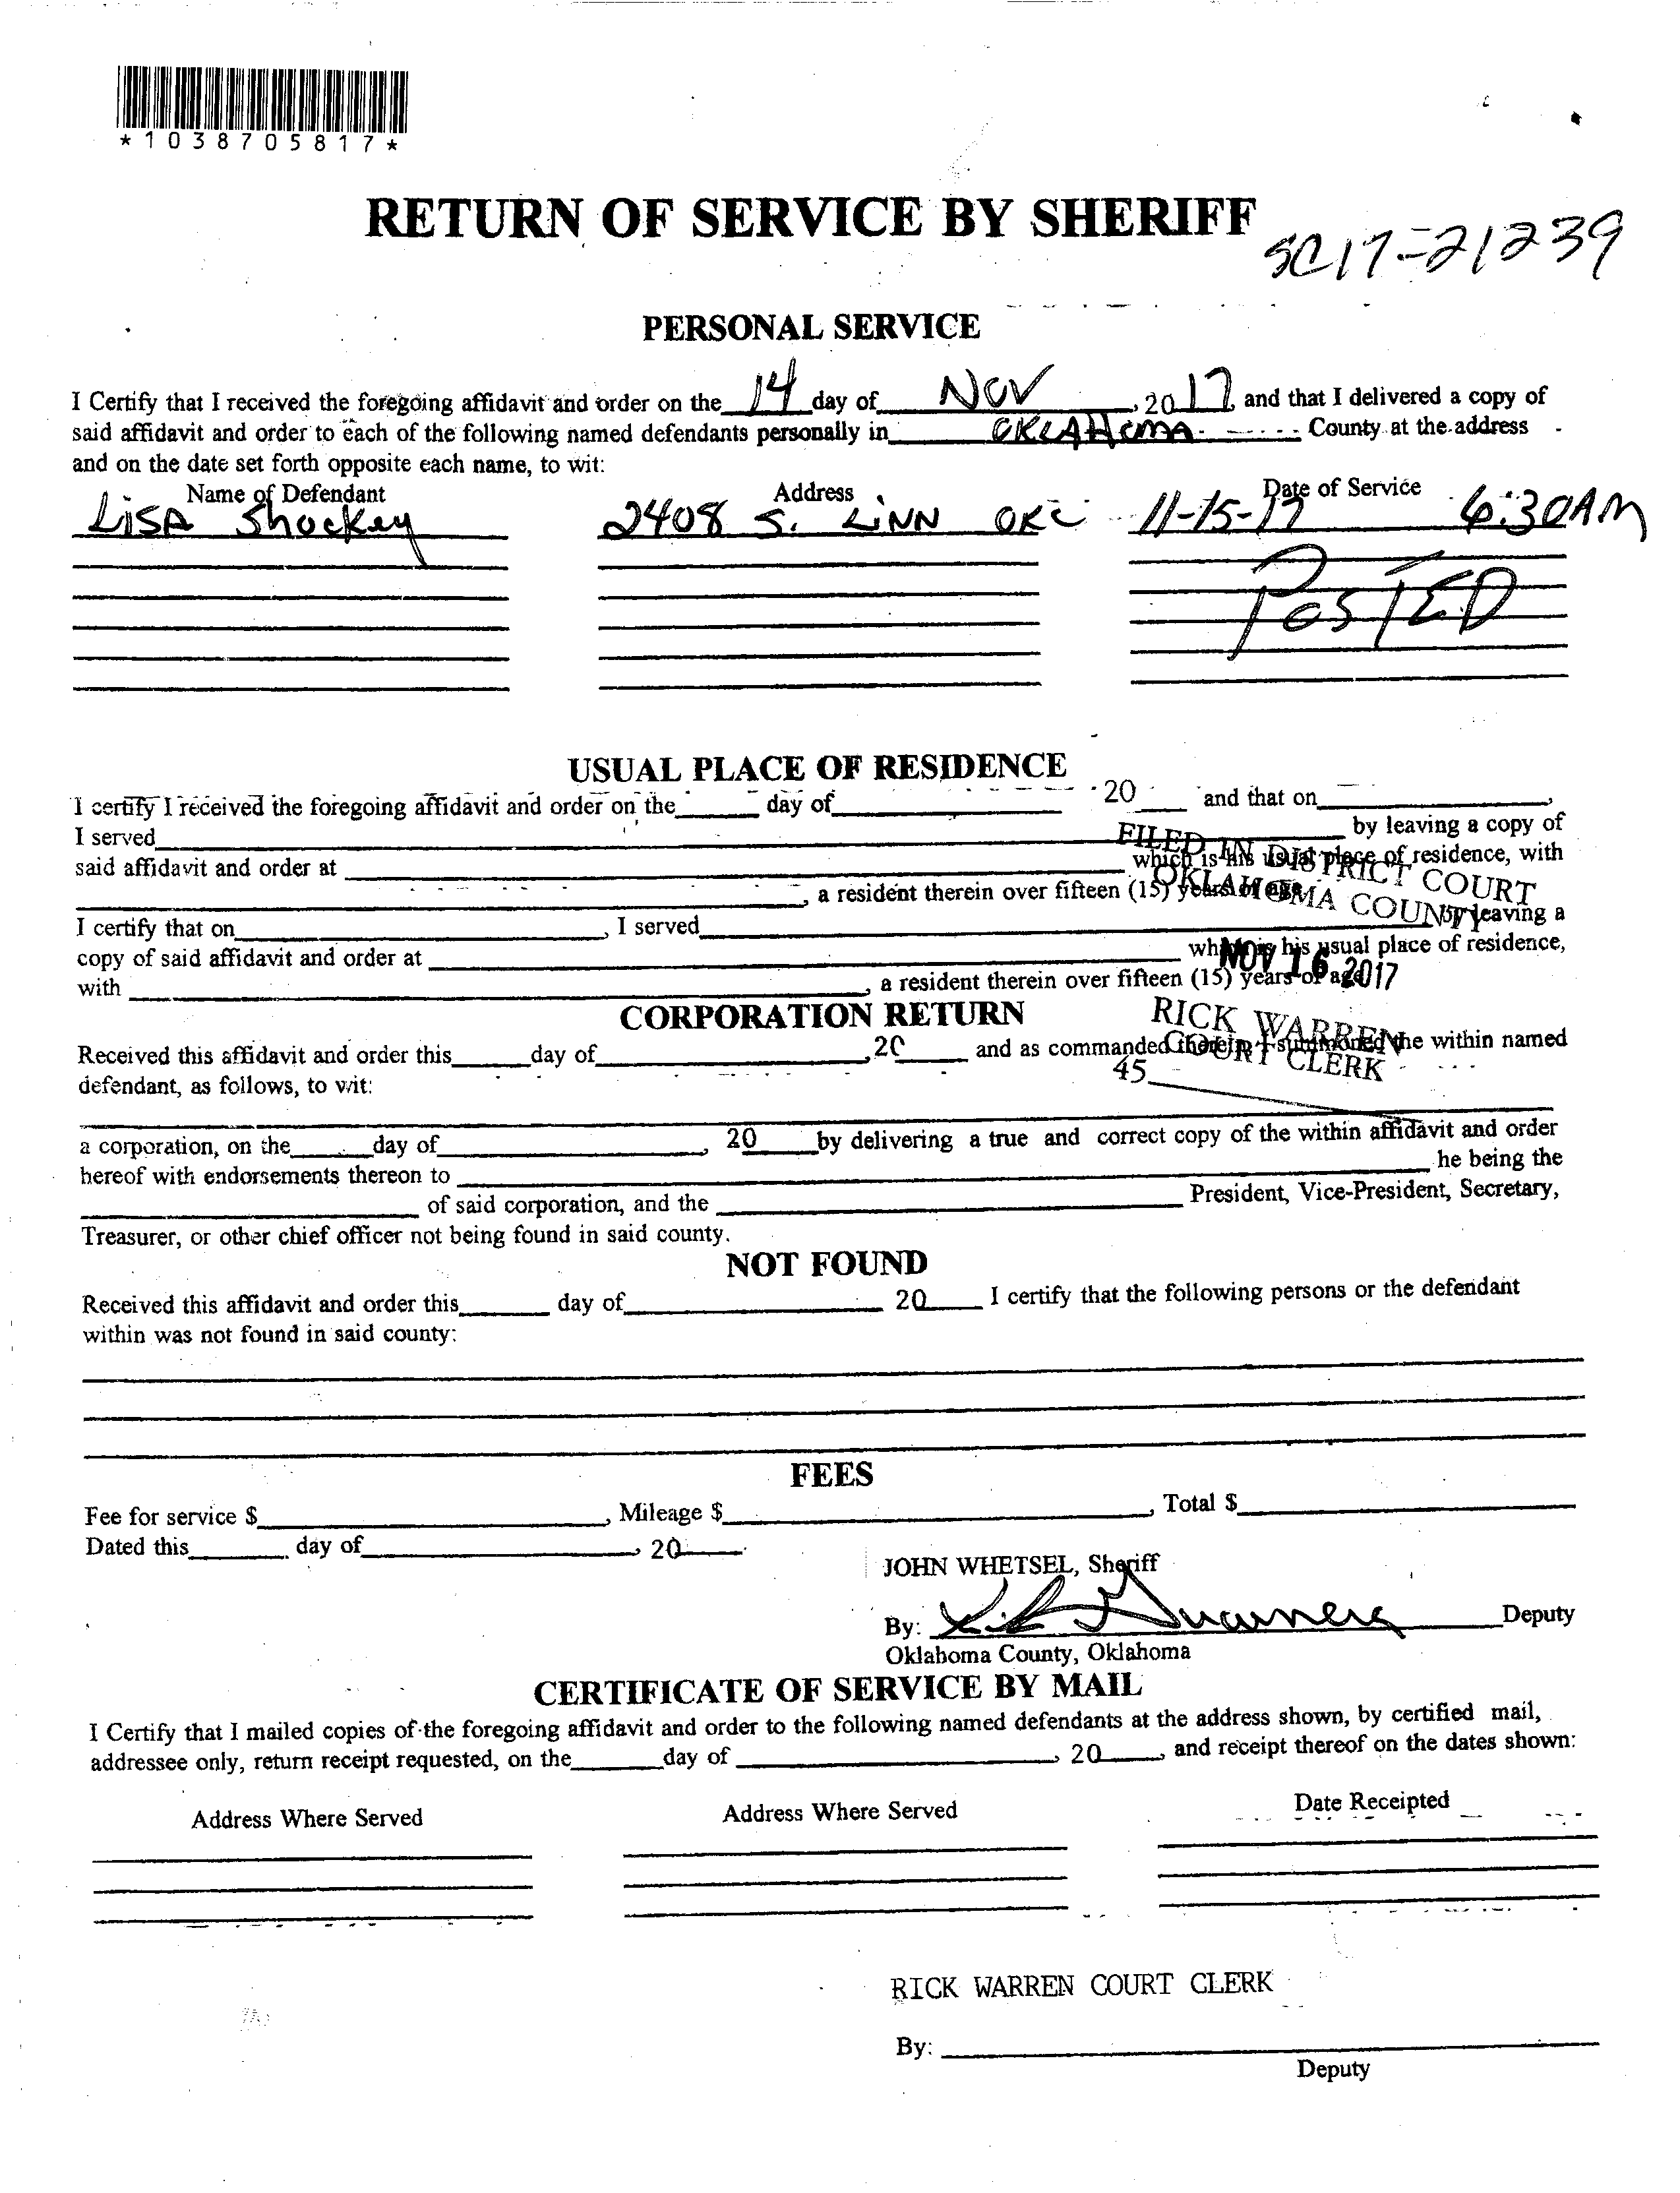 *1038705817*
RETURN OF SERVICE BY SHERIFF
SC17-21239
PERSONAL SERVICE
I Certify that I received the foregoing affidavit and order on the 14 day of NOV, 2017, and that I delivered a copy of
said affidavit and order to each of the following named defendants personally in OKLAHOMA County at the address
and on the date set forth opposite each name, to wit:
Name of Defendant Address Date of Service
LISA Shockey 2408 S. LINN OKC 11-15-17 6:30AM
POSTED
USUAL PLACE OF RESIDENCE
I certify I received the foregoing affidavit and order on the______ day of______ 20___ and that on______,
I served______ by leaving a copy of
said affidavit and order at ______ which is his usual place of residence, with
______, a resident therein over fifteen (15) years of age.
I certify that on______, I served______ by leaving a
copy of said affidavit and order at ______ which is his usual place of residence,
with ______, a resident therein over fifteen (15) years of age.
FILED IN DISTRICT COURT
OKLAHOMA COUNTY
NOV 16 2017
RICK WARREN
COURT CLERK
45______
CORPORATION RETURN
Received this affidavit and order this______day of______,20____ and as commanded therein I summoned the within named
defendant, as follows, to wit:
a corporation, on the______day of______, 20____by delivering a true and correct copy of the within affidavit and order
hereof with endorsements thereon to ______ he being the
______ of said corporation, and the ______ President, Vice-President, Secretary,
Treasurer, or other chief officer not being found in said county.
NOT FOUND
Received this affidavit and order this______ day of______ 20____ I certify that the following persons or the defendant
within was not found in said county:
FEES
Fee for service $______, Mileage $______, Total $______
Dated this______ day of______, 20____.
JOHN WHETSEL, Sheriff
By: ______ Deputy
Oklahoma County, Oklahoma
CERTIFICATE OF SERVICE BY MAIL
I Certify that I mailed copies of the foregoing affidavit and order to the following named defendants at the address shown, by certified mail,
addressee only, return receipt requested, on the______day of ______, 20____, and receipt thereof on the dates shown:
Address Where Served Address Where Served Date Receipted
RICK WARREN COURT CLERK
By: ______
Deputy